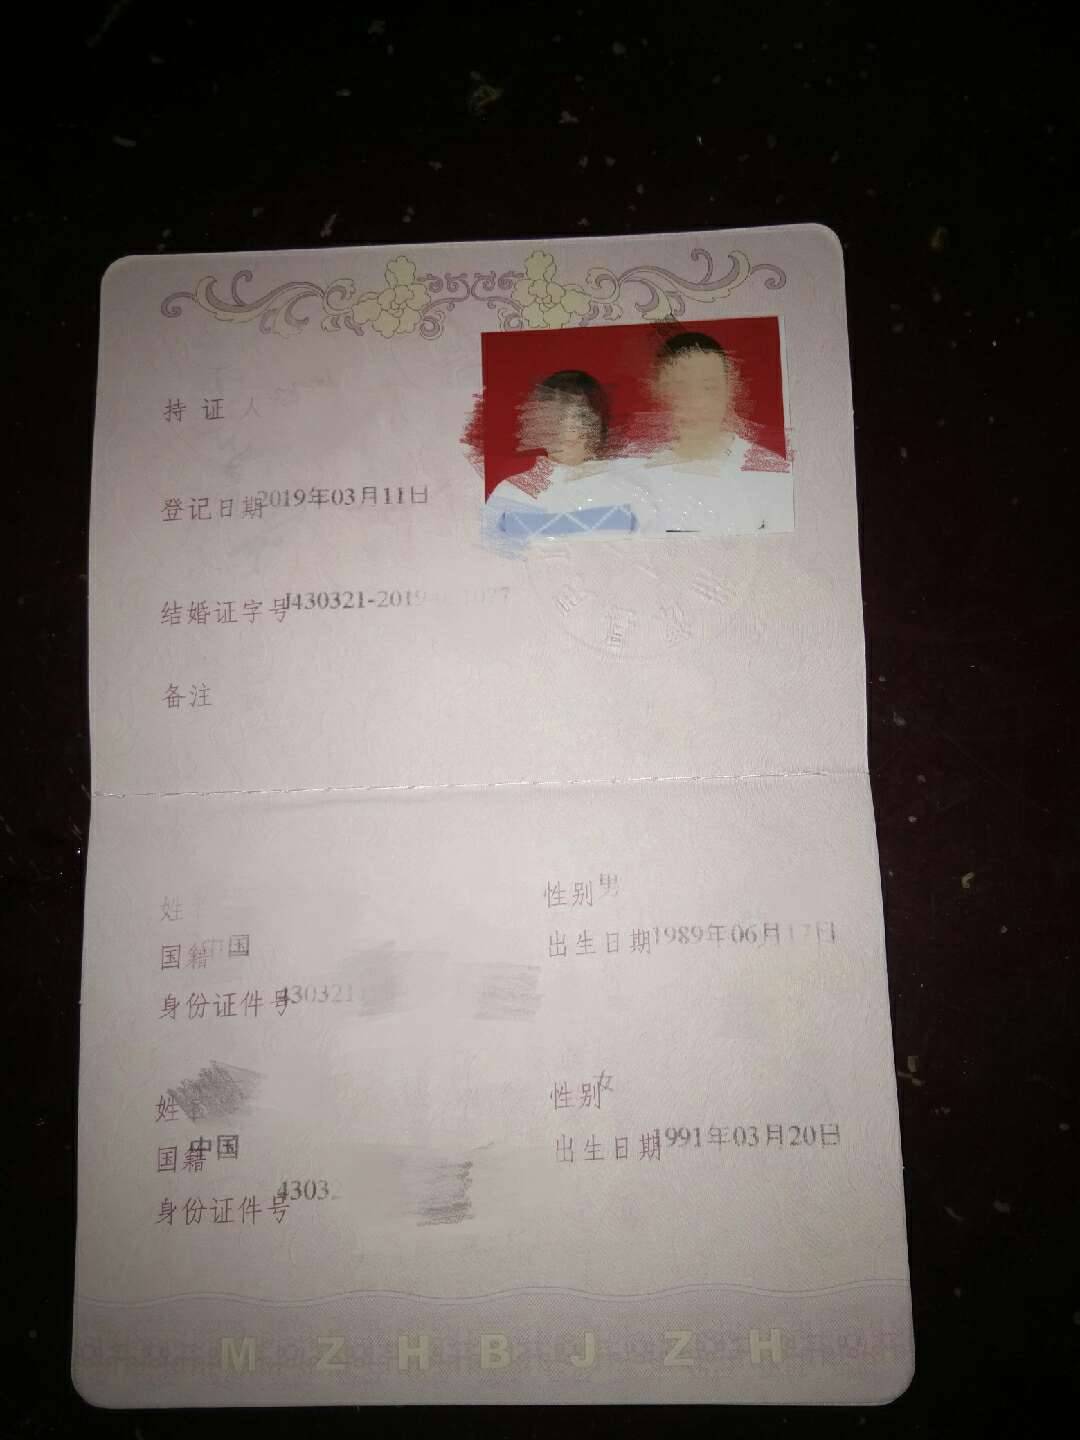 持证人
登记日期2019年03月11日
结婚证字号J430321-2019
备注
姓 性别男
国籍中国 出生日期1989年06月17日
身份证件号430321
姓 性别女
国籍中国 出生日期1991年03月20日
身份证件号4303
MZHBJZH